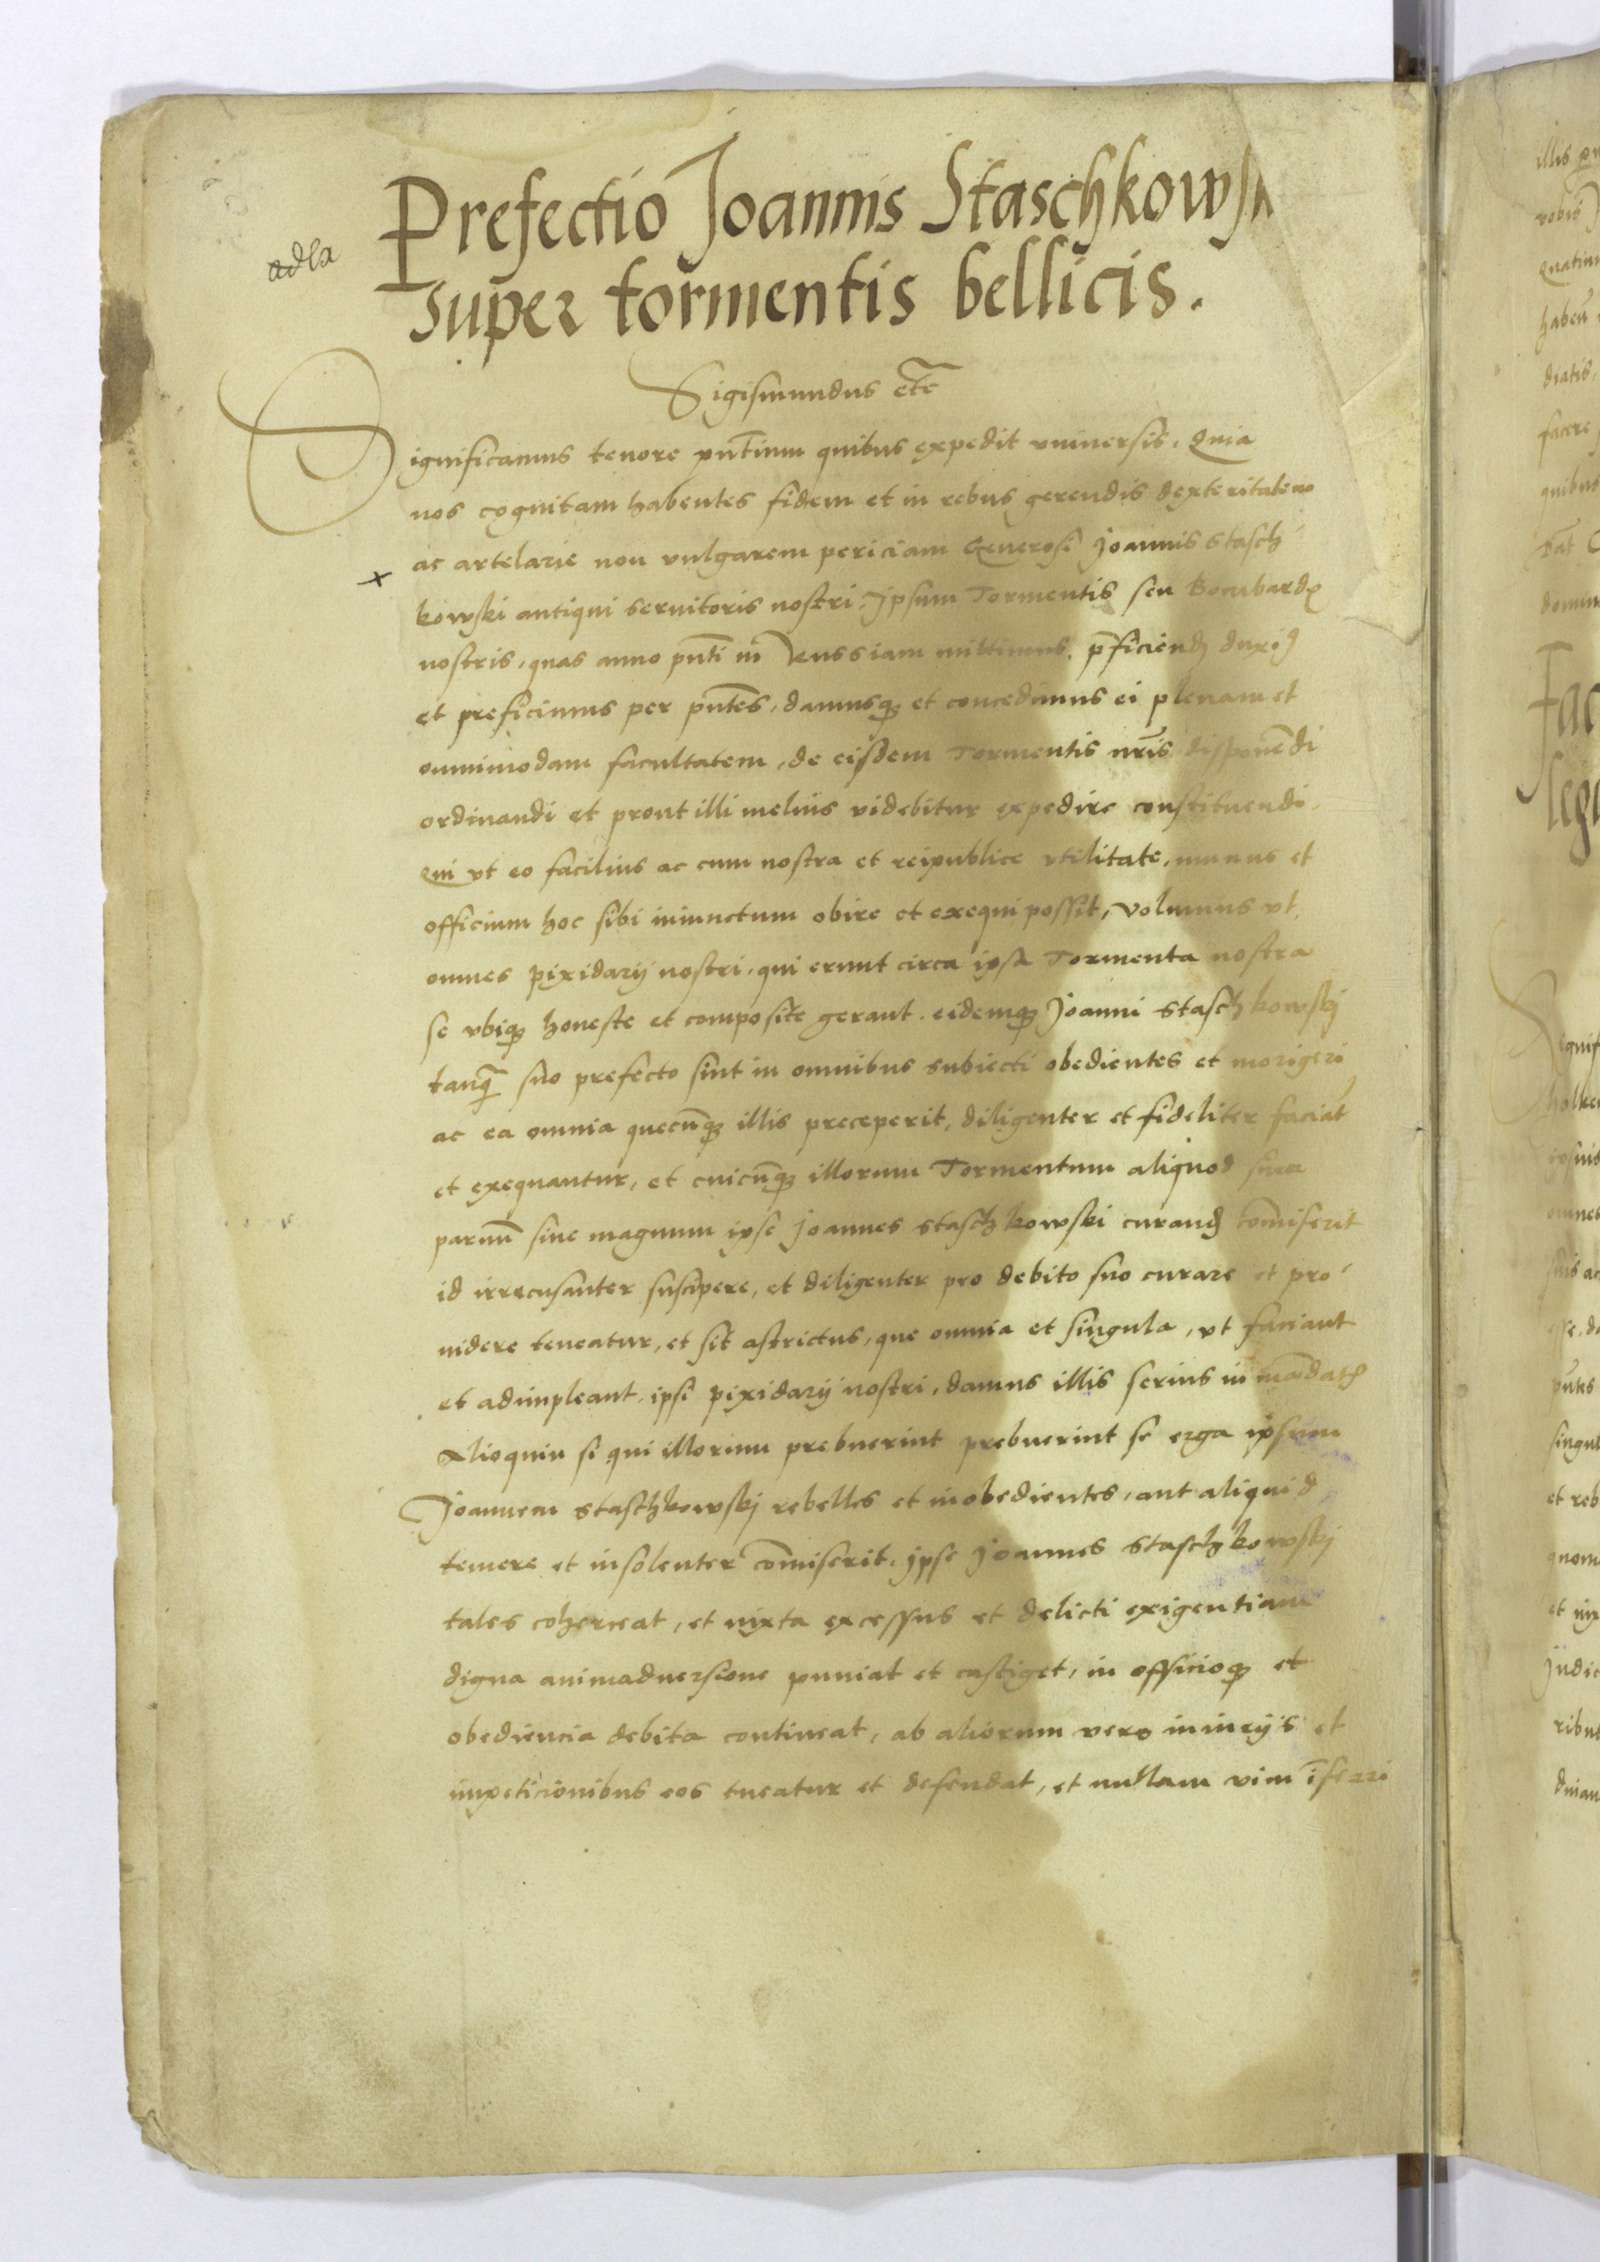 adla
Prefectio Joannis Staschkowsk
super tormentis bellicis.
Sigismundus etc
Significamus tenore pntium quibus expedit vniversis. Quia
nos cognitam habentes fidem et in rebus gerendis dexteritatem
ac artelarie non vulgarem periciam Generosi Joannis Stasch
kowski antiqui servitoris nostri. Ipsum Tormentis seu Bombardis
nostris, quas anno pnti in mittimus, pficiend duxim9
et preficimus per pntes, damusq et concedimus ei plenam et
omnimodam facultatem, de eisdem Tormentis nris disponendi
ordinandi et prout illi melius videbitur expedire constituendi.
Qui vt eo facilius ac cum nostra et reipublice vtilitate, munus et
officium hoc sibi iniunctum obire et exequi possit, volumus vt
omnes pixidarij nostri, qui erunt circa ipsa Tormenta nostra
se vbiq honeste et composite gerant. eidemq Joanni Staschkowskj
tanq suo prefecto sint in omnibus subiecti obedientes et morigeri
ac ea omnia quecunq illis preceperit, diligenter et fideliter faciat
et exequantur, et cuicunq illorum Tormentum aliquod siue
paruu siue magnum ipse Joannes Staschkowski curand comiserit
id irrecusanter suscipere, et diligenter pro debito suo curare et pro
uidere teneatur, et sit astrictus, que omnia et singula, vt faciant
et adimpleant ipsi pixidarij nostri, damus illis serius in madatis
Alioquin si qui illorum prebuerint prebuerint se erga ipsum
Joannem Staschkowskj rebelles et inobedientes, aut aliquid
temere et insolenter comiserit. Ipse Joannes Staschkowskj
tales coherceat, et iuxta excessus et delicti exigentiam
digna animadversione puniat et castiget, in officioq et
obediencia debita contineat, ab aliorum vero iniurijs et
impeticionibus eos tueatur et defendat, et nullam vim iferri